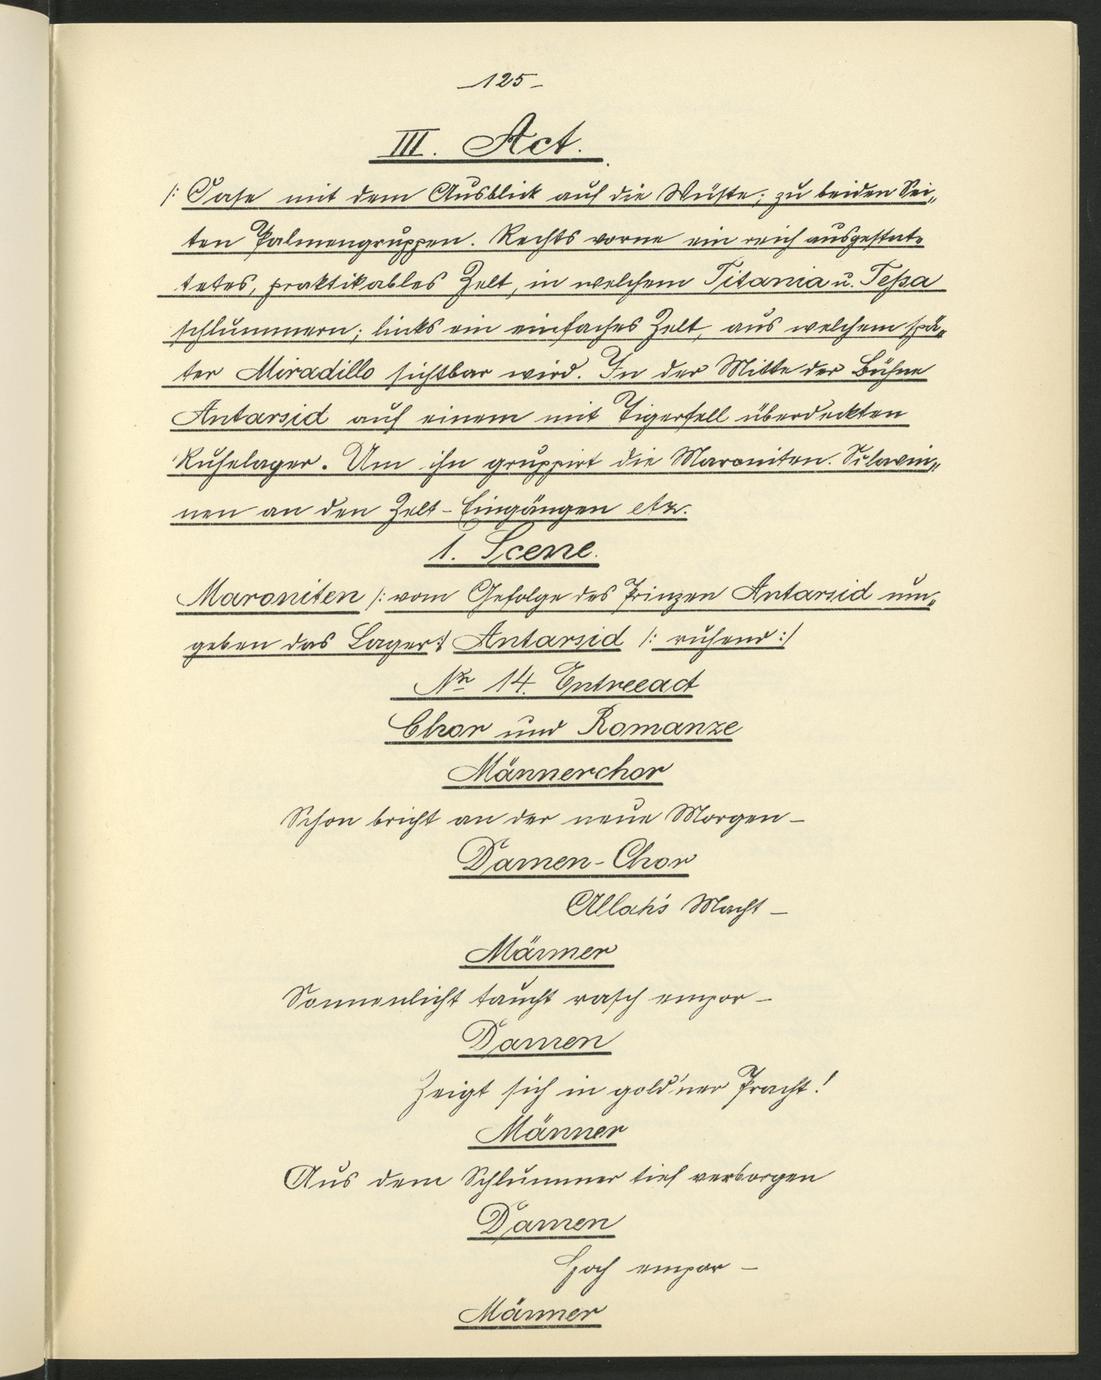 -125-
III. Act.
/: Oase mit dem Ausblick auf die Wüste; zu beiden Sei„
ten Palmengruppen. Rechts vorne ein reich ausgestat„
tetes, praktikables Zelt, in welchem Titania u. Tessa
schlummern; links ein einfaches Zelt, aus welchem spä„
ter Miradillo sichtbar wird. In der Mitte der Bühne
Antarsid auf einem mit Tigerfell überdeckten
Ruhelager. Um ihn gruppirt die Maroniten. Sclavin„
nen an den Zelt-Eingängen etz.
1. Scene.
Maroniten /: vom Gefolge des Prinzen Antarsid um„
geben das Lager :/ Antarsid /: ruhend :/
Nr 14. Entreeact
Chor und Romanze
Männerchor
Schon bricht an der neue Morgen –
Damen-Chor
Allah's Macht –
Männer
Sonnenlicht taucht rasch empor –
Damen
Zeigt sich in gold'ner Pracht!
Männer
Aus dem Schlummer tief verborgen
Damen
Hoch empor –
Männer